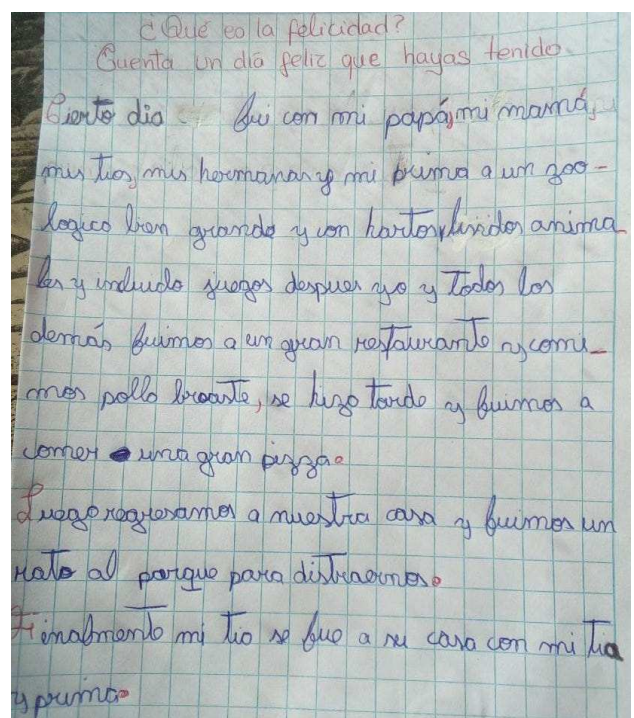 ¿Qué es la felicidad?
Cuenta un día feliz que hayas tenido.
Cierto dia fui con mi papá, mi mamá,
mis tios, mis hermanas y mi prima a un zoo-
logico bien grande y con hartos lindos anima
les y incluido juegos despues yo y Todos los
demás fuimos a un gran restaurante y comi-
mos pollo broaste, se hizo tarde y fuimos a
comer una gran pizza.
Luego regresamos a nuestra casa y fuimos un
rato al parque para distraernos.
Finalmente mi tio se fue a su casa con mi tia
y prima.